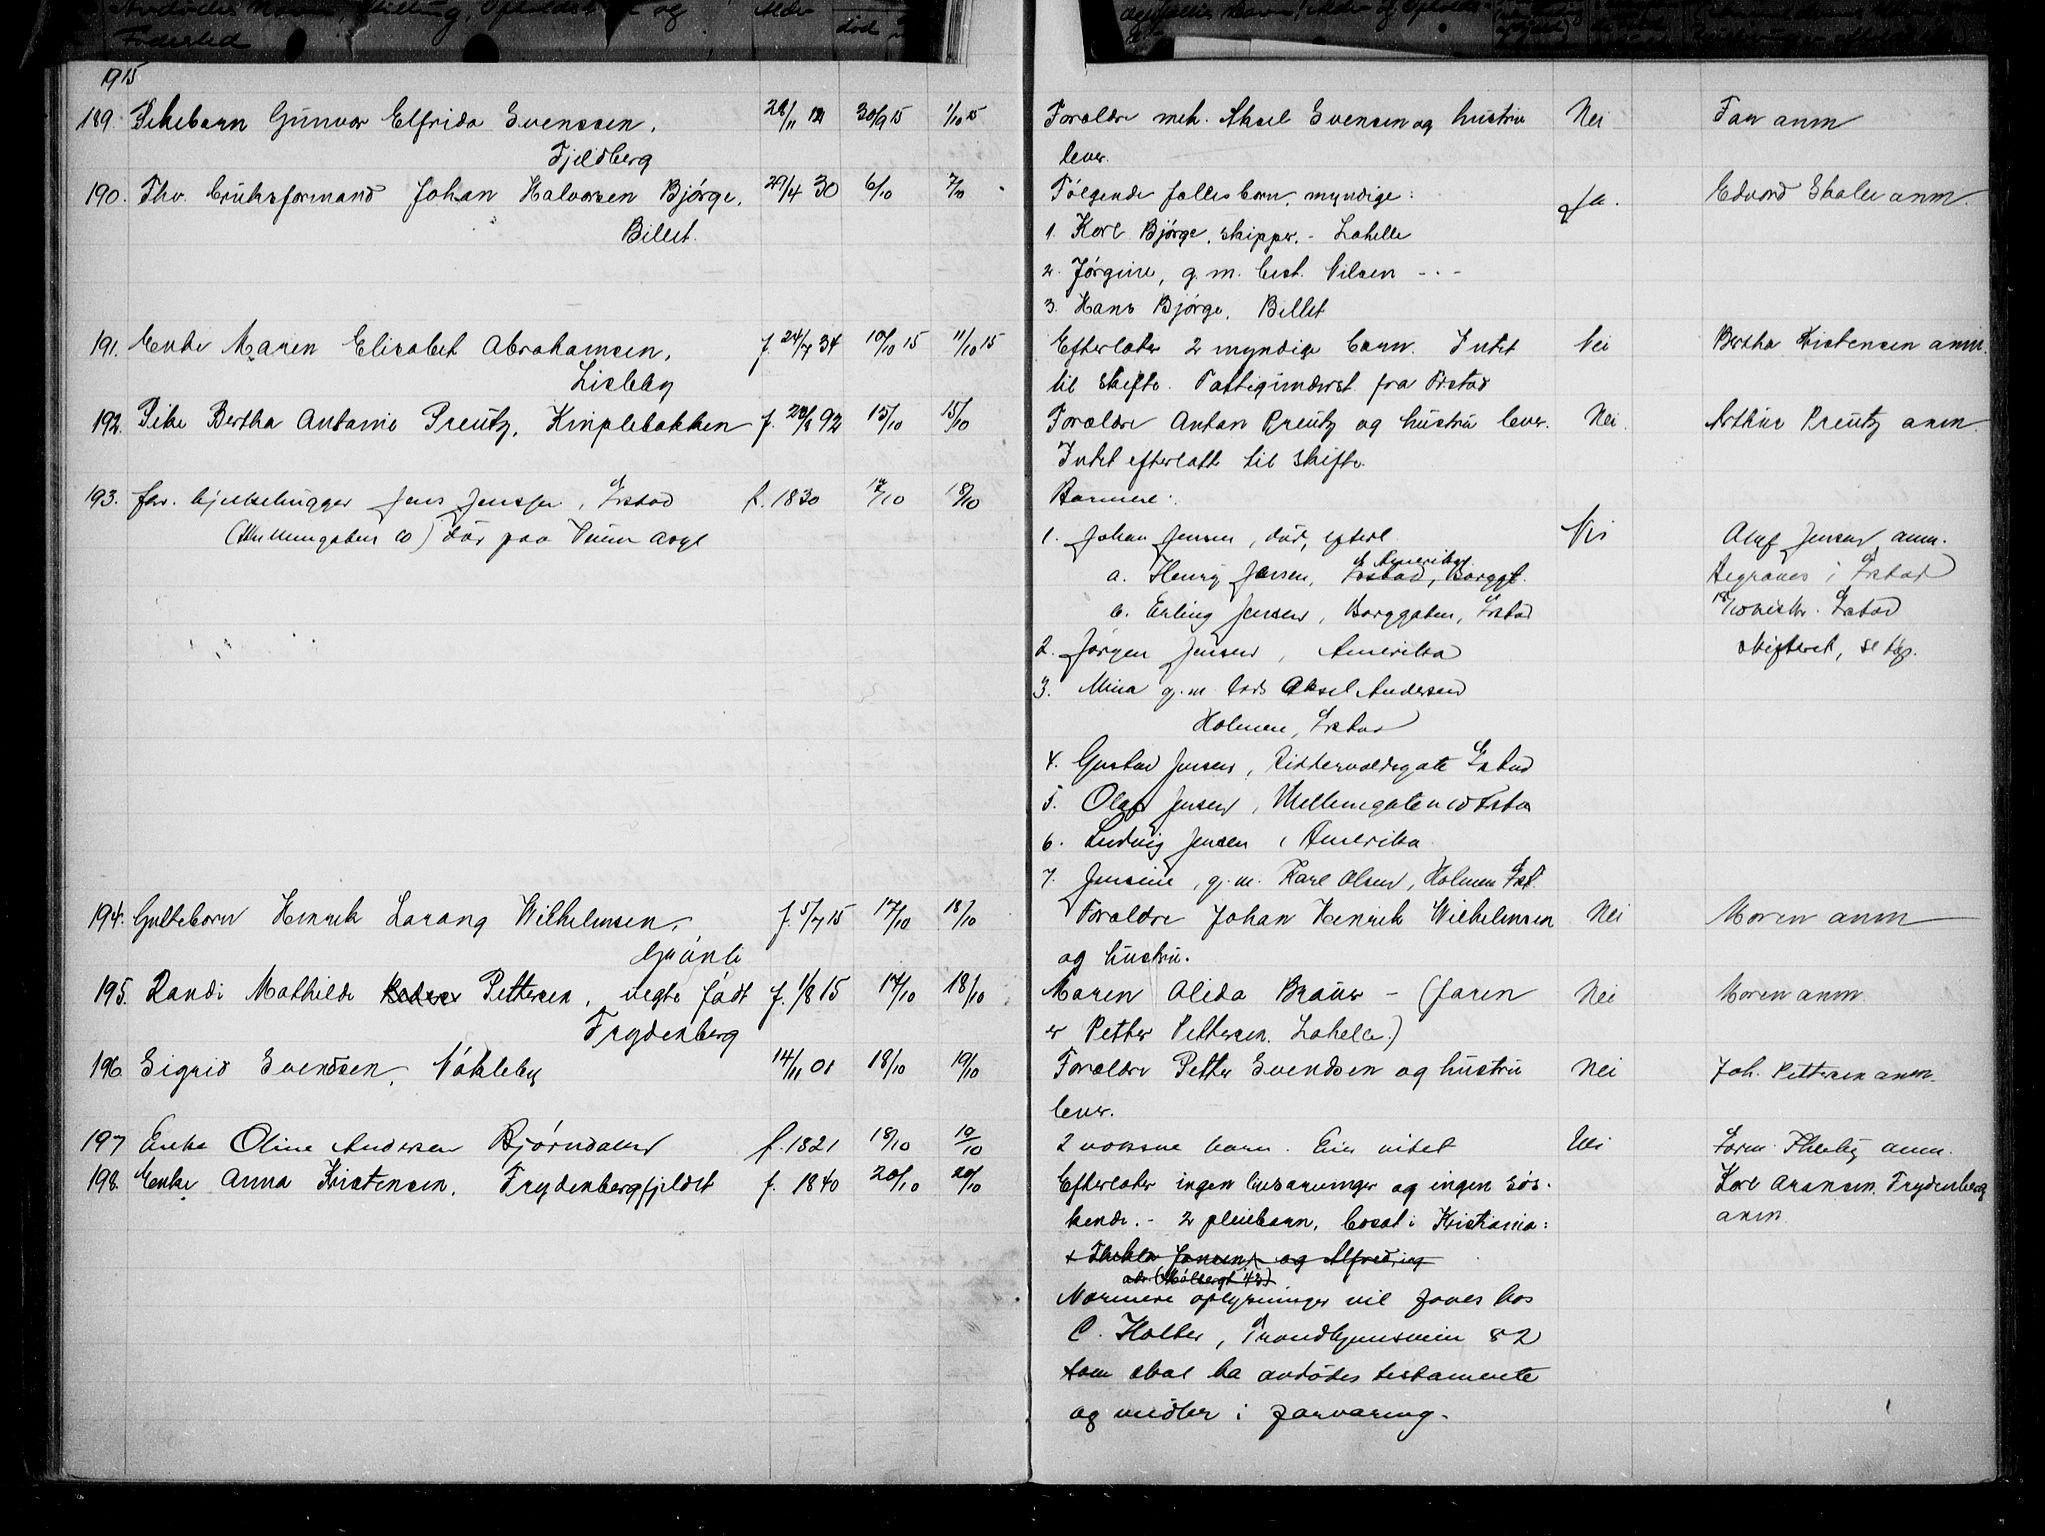 Fødested
død
1915
189. Pikebarn Gunvor Elfrida Svenssen, 28/11 30/9 15 1/10 15 Forældre mek. Aksel Svensen og hustru Nei Far anm
Fjeldberg lever.
190. Fhv. bruksformand Johan Halvorsen Bjørge, 29/4 30 6/10 7/10 Følgende fælles barn, myndige: Ja. Edvard Skolee anm.
Billet. 1. Karl Bjørge, skipper, - Lahelle
2. Jørgine, g. m. best. Nilsen - . -
3. Hans Bjørge, Billet
191. Enke Maren Elisabet Abrahamsen, f. 24/7 34 10/10 15 11/10 15 Efterlater 2 myndige barn. Intet Nei Bertha Kristensen anm.
Lisleby til skifte. Fattigunderst. fra Frstad
192. Pike Bertha Antonie Preutz, Kniplebakken f. 23/8 92 15/10 15/10 Forældre Anton Preutz og hustru lever. Nei. Arthur Preutz anm.
Intet efterlatt til skifte.
193. fhv. bjelkehugger Jens Jensen, Frstad f. 1830 17/10 18/10 Barnene:
(Mellemgaten 10) død paa Veum asyl 1. Johan Jensen, død, efterl. Nei Olaf Jensen anm.
a. Henry Jensen, Frstad, Borggt. Amerika Begraves i Frstad
b. Erling Jensen, Borggaten, Frstad 18/10 Frstad
2. Jørgen Jensen, Amerika skifteret, se
3. Mina g. m. Aksel Andersen
Holmen, Frstad
4. Gustav Jensen, Riddervoldsgate Frstad
5. Olaf Jensen, Mellemgaten 10 Frstad
6. Ludvig Jensen, Amerika
7. Jensine, g. m. Karl Olsen, Holmen Frst.
194. Guttebarn Henrik Lorang Wilhelmsen, f. 5/7 15 17/10 18/10 Forældre Johan Henrik Wilhelmsen Nei Moren anm
Grønli og hustru.
195. Randi Mathilde Pettersen, uegte født f. 1/8 15 17/10 18/10 Maren Alida Braur - (faren Nei Moren anm.
Frydenberg er Petter Pettersen, Lahelle.)
196. Sigrid Svendsen, Nøkleby 14/11 01 18/10 19/10 Forældre Petter Svendsen og hustru Nei Joh. Pettersen anm.
lever.
197 Enke Oline Andersen Bjørndalen f. 1821 18/10 19/10 2 voksne barn. Eier intet Nei anm.
198. Enke Anna Kristensen, Frydenbergfjeldet f. 1840 20/10 20/10 Efterlater ingen livsarvinger og ingen søs- Karl Aronsen, Frydenberg
kende. - 2 pleiebarn, bosat i Kristiania: anm.
Thekla Jonsen og Alfred
Nærmere oplysninger vil faaes hos
C. Holter, Trondhjemsveien 82
som skal ha avdødes testamente
og midler i forvaring.